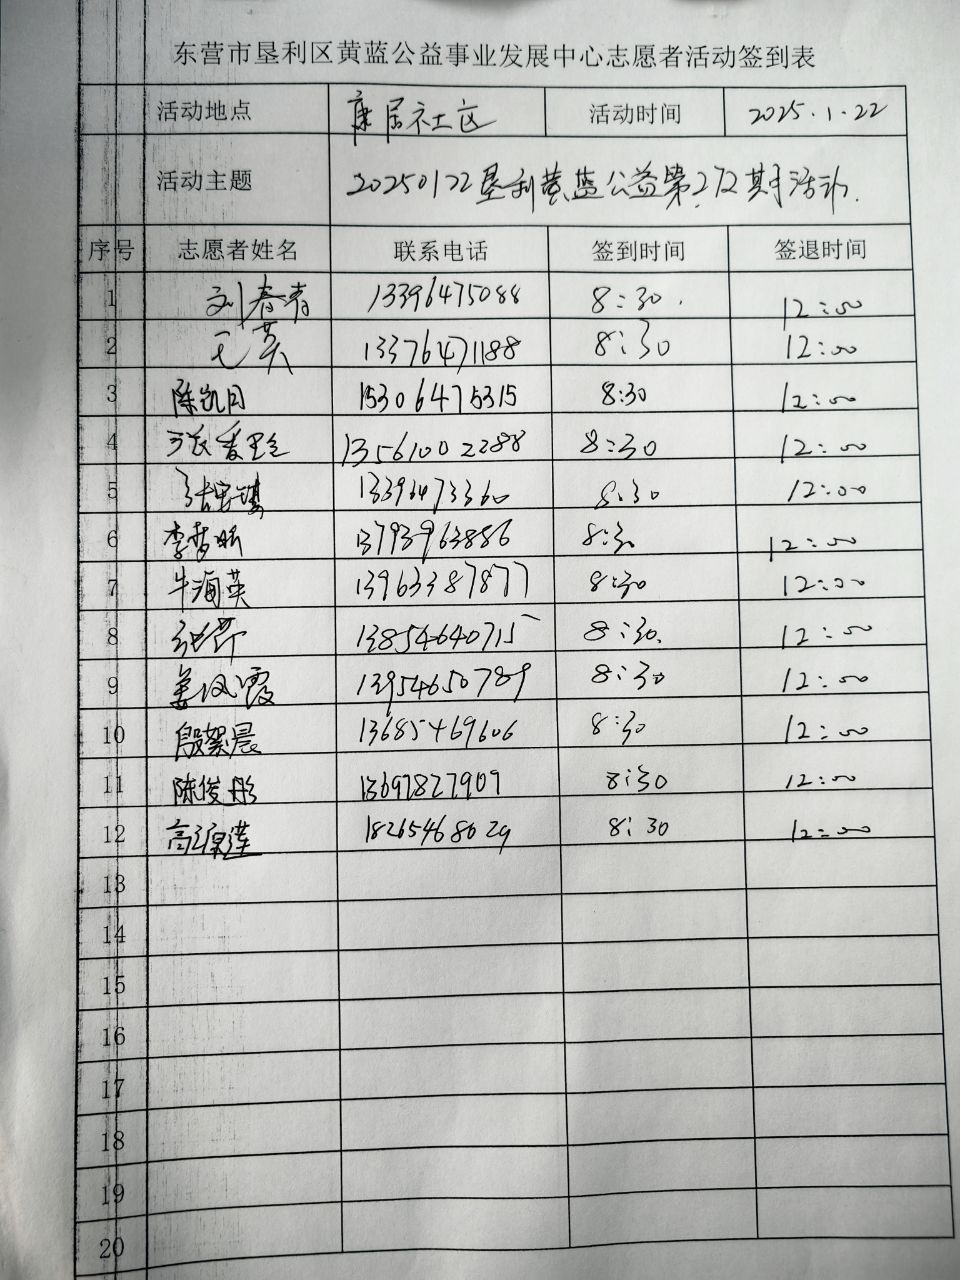 东营市垦利区黄蓝公益事业发展中心志愿者活动签到表
活动地点 康居社区 活动时间 2025.1.22
活动主题 20250122垦利黄蓝公益第272期活动.
序号 志愿者姓名 联系电话 签到时间 签退时间
1 刘春青 13396475088 8:30. 12:00
2 王英 13376471188 8:30 12:00
3 陈凯月 15306475315 8:30 12:00
4 张香玲 13561002288 8:30 12:00
5 张 13396473360 8:30 12:00
6 李梦昕 13793963886 8:30 12:00
7 牛海英 13963387877 8:30 12:00
8 张芹 13854640715 8:30. 12:00
9 姜凤霞 13954650789 8:30 12:00
10 殷絮晨 13685469606 8:30 12:00
11 陈俊彤 13697827907 8:30 12:00
12 高源莲 18265468029 8:30 12:00
13
14
15
16
17
18
19
20